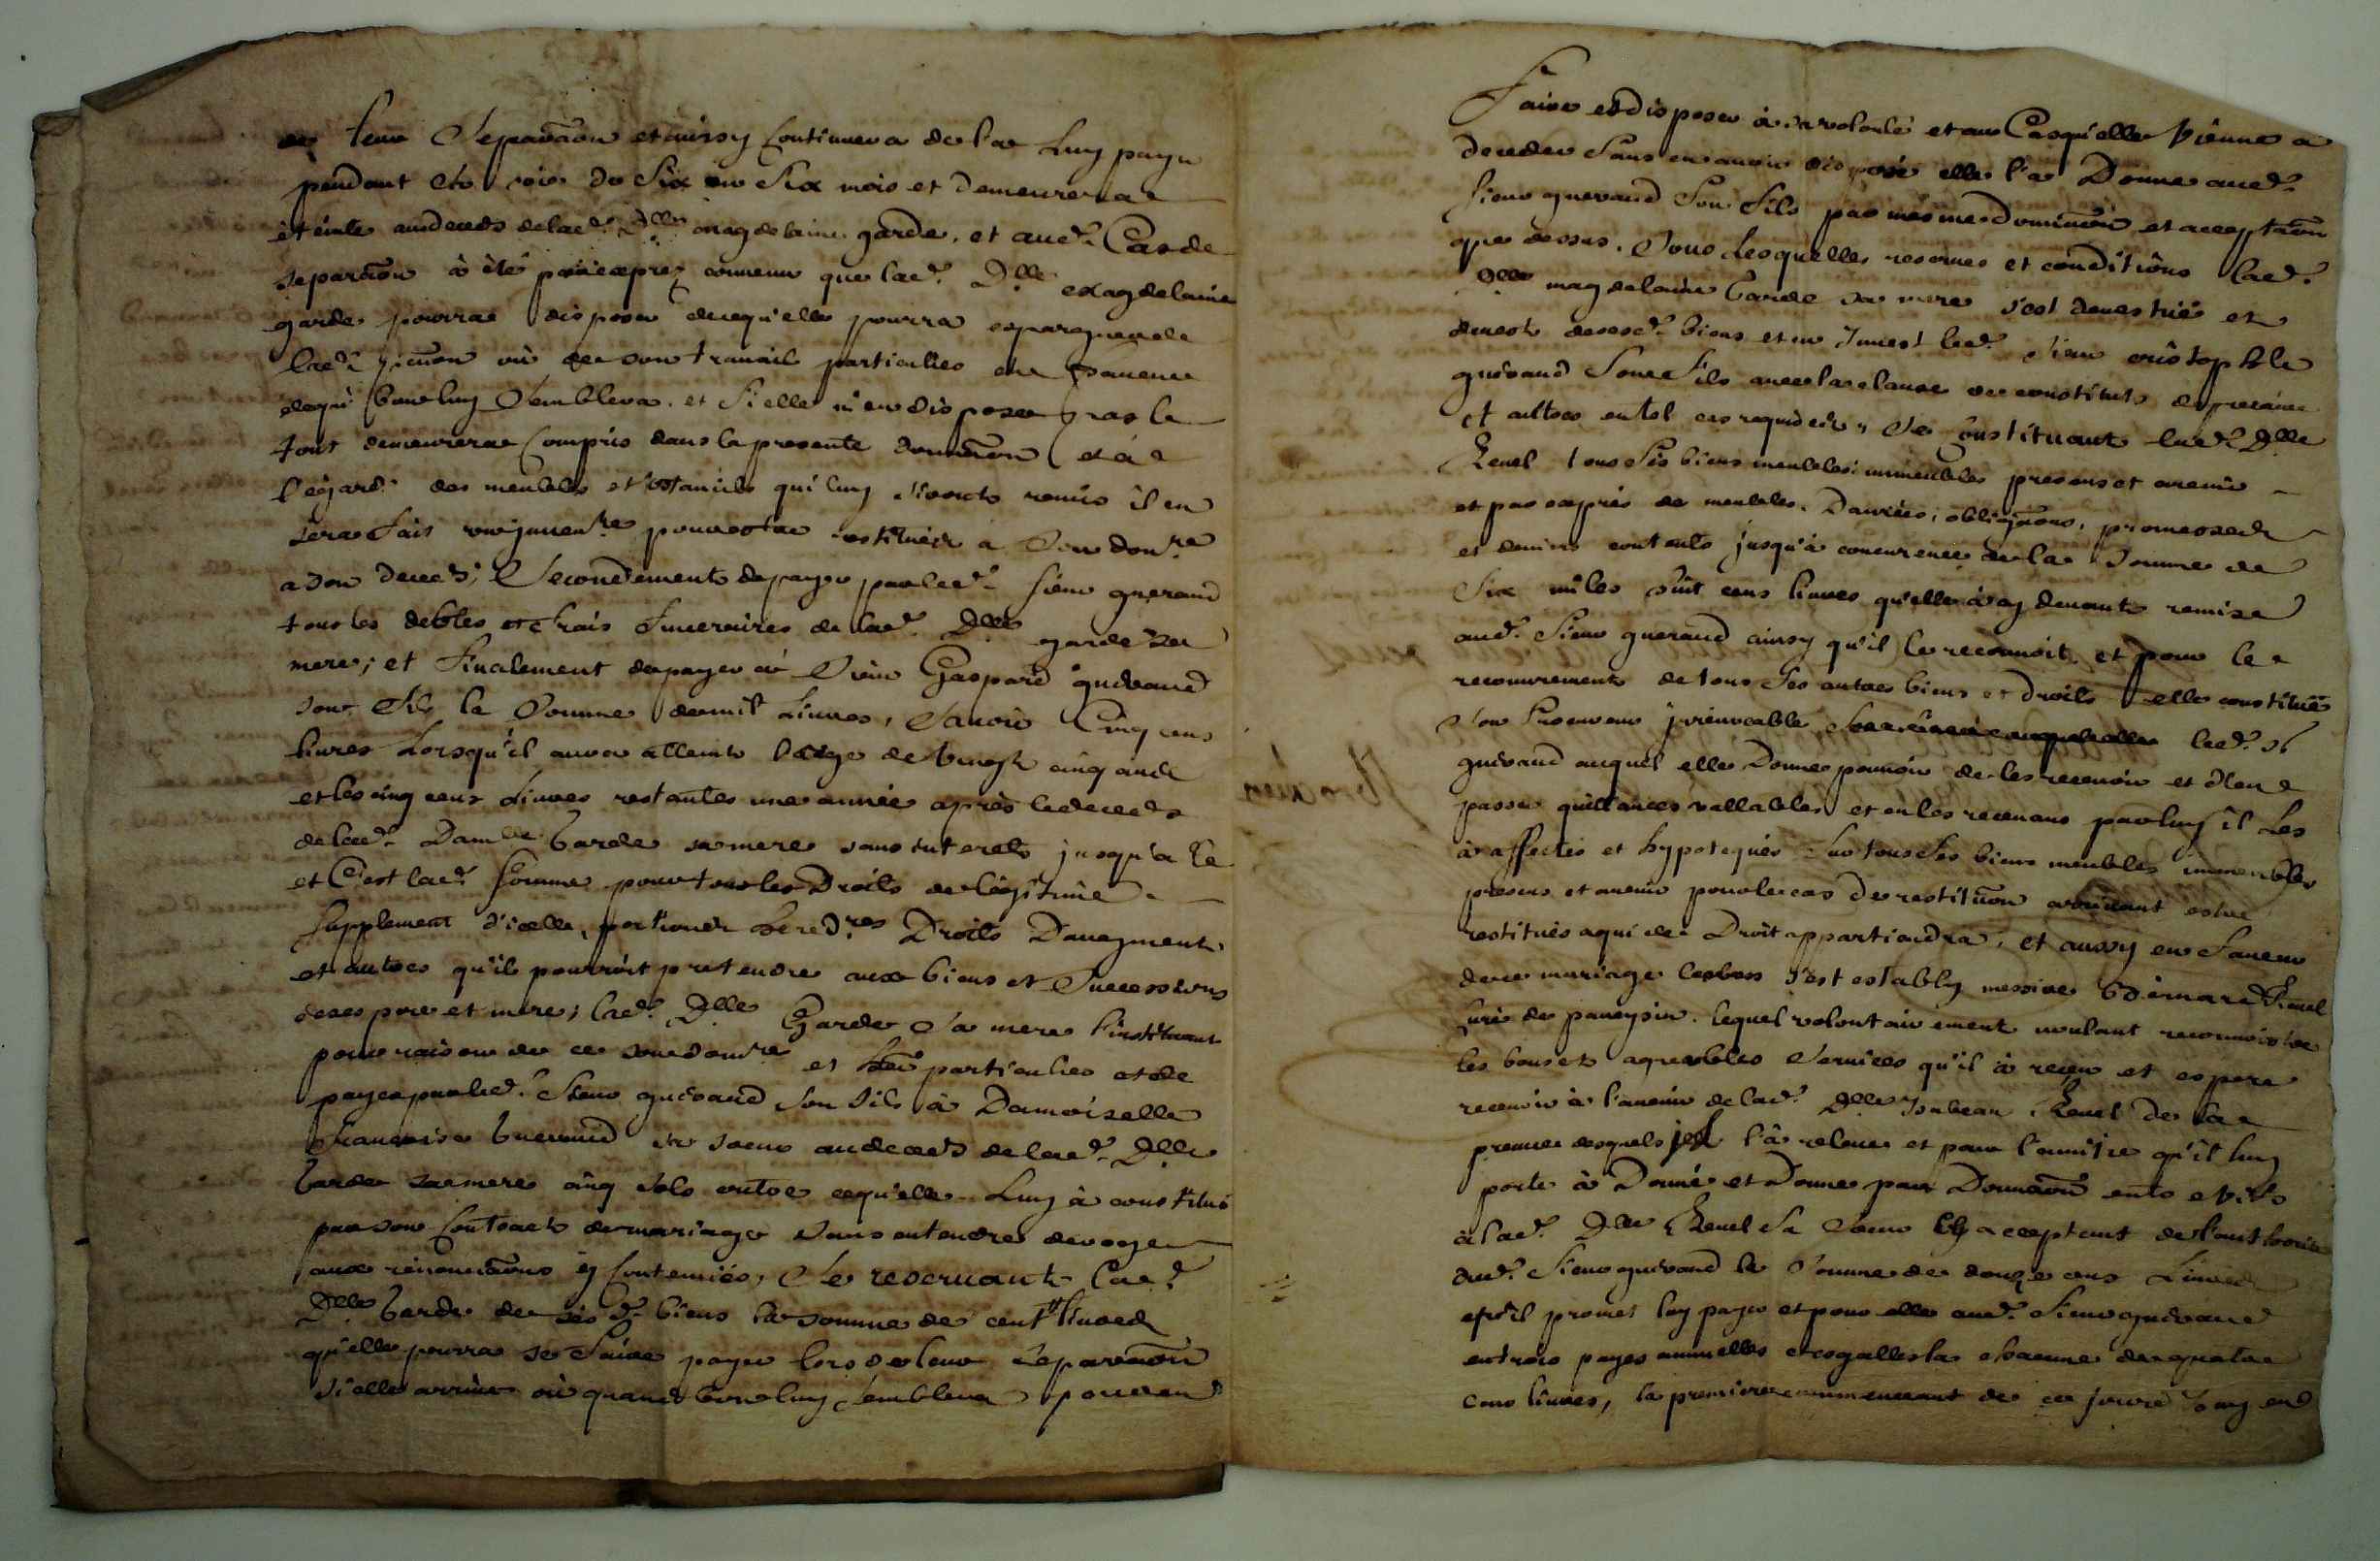 de leur separaōn et ainsy continuera de la luy payer
pendant sa vie de six en six mois et demeurera
éteinte au deceds de lad.e D.lle magdelaine garde, et aud.t Cas de
separaōn à été par exprez convenu que lad.e D.lle magdelaine
garde pourra disposer de ce qu'elle pourra espargner de
lad.e p̄ention ou de son travail particulier en faveur
de qui bon luy semblera, et si elle n'en dispose pas le
tout demeurera compris dans la presente donnaōn et à
l'égard des meubles et ustancils qui luy seronts remis il en
sera fait un jnven.re pour estre restitués a son don.re
a son deceds; secondement de payer par led.t sieur gueraud
tous les debtes et frais funeraires de lad.e D.lle garde sa
mere; et finalement de payer à sieur Gaspard gueraud
son fils la somme de mil livres, savoir Cinq cens
livres lorsqu'il aura atteint l'aage de vingt cinq ans
et les cinq cens livres restantes une année après le deceds
de lad.e Dam.lle Garde sa mere sans interets jusqu'a ce
et C'est lad.e somme pour tous les Droits de légitime
supplement d'icelle, portions hered.res Droits D'augment
et autres qu'il pourroit pretendre aux biens et successions
de ses pere et mere; lad.e D.lle Garde sa mere l'instituant
pour raison de ce son don.re et her. particulier et de
payer par led.t sieur gueraud son fils à Damoiselle
Françoise Gueraud sa soeur au deceds de lad.e D.lle
Garde sa mere cinq sols outre ce qu'elle luy à constitué
par son Contract de mariage sans entendre deroger
aux renonciaōns y Contenües, se reservant lad.e
D.lle Garde de ses d. biens la somme de cent livres
qu'elle pourra se faire payer lors de leur separaōn
si elle arrive où quand bon luy semblera pour en
Faire et disposer à sa volonté et au Cas qu'elle vienne a
deceder sans en avoir disposé elle l'a Donne aud.t
sieur gueraud son fils par mesme donnaōn et acceptaōn
que dessus. Sous lesquelles reserves et conditions lad.e
D.lle magdelaine Garde sa mere s'est devestüe et
devest de ses d. biens et en Jnvest led.t sieur cristophle
gueraud son fils avec la clause de constituts de precaire
et autres en tel cas requises, se constituant lad.e D.lle
Revel tous ses biens meubles immeubles presens et avenir
et par exprés de meubles, Danrées, obligaōns, promesses
et deniers contents jusqu'à concurrence de la somme de
Six milles huit cens livres qu'elle à cy devant remise
aud.t sieur gueraud ainsy qu'il le reconnoit, et pour le
recouvrement de tous ses autres biens et droits elle constitüe
son procureur jrrevocable led.t s.r
gueraud auquel elle Donne pouvoir de les recevoir et d'en
passer quittances vallables et en les recevant par luy il les
à affectés et hypotequés sur tous ses biens meubles immeubles
presens et avenir pour le cas de restituōn arrivant estre
restitués a qui de Droit appartiendra, et aussy en faveur
de ce mariage s'est estably messire Revel
curé de lequel volontairement voulant reconnoistre
les bons et agreables services qu'il à reçeu et espere
recevoir à l'avenir de lad.e D.lle Jsabeau Revel de la
preuve desquels il l'à relevée et pour l'amitié qu'il luy
porte à Donné et Donne par Donnaōn entre vifs
à lad.e D.lle Revel sa soeur acceptant de l'authorité
dud.t sieur gueraud la somme de douze cens livres
qu'il promet luy payer et pour elle aud.t sieur gueraud
en trois payes annuelles et esgalles la chacune de quatre
cens livres, la premiere commencant de ce jourd'huy en